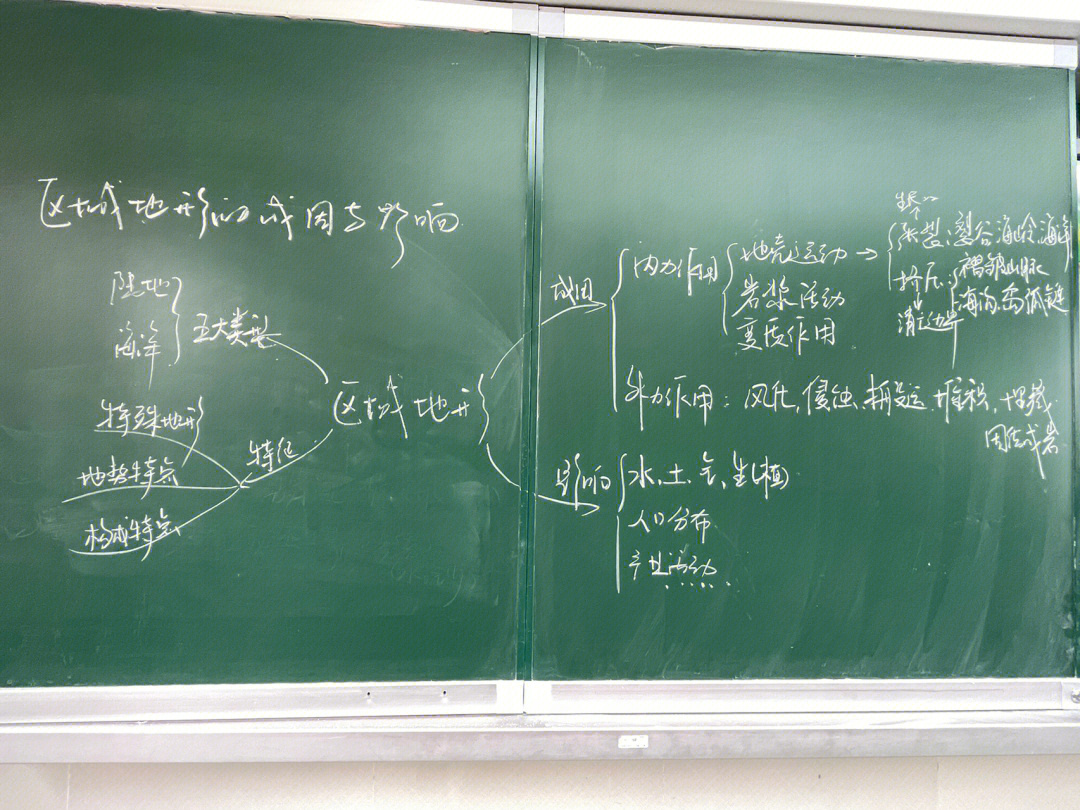 区域地形的成因与影响
陆地
海洋
五大类型
特殊地形
地势特点
构成特点
特征
区域地形
成因
内力作用
地壳运动
岩浆活动
变质作用
生长
张裂:裂谷海岭海洋
挤压:
褶皱山脉
海沟,岛弧链
消亡边界
外力作用:风化,侵蚀,搬运,堆积,
固结成岩
影响
水,土,气,生(植
人口分布
产业活动......